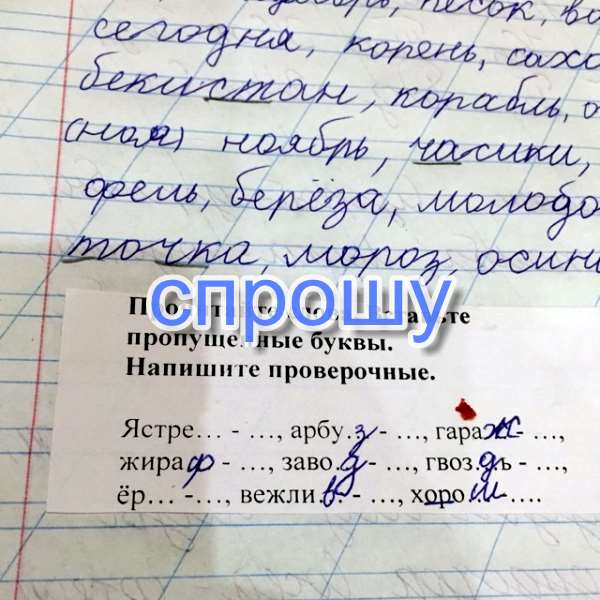 песок,
сегодня, корень,
бекистан, корабль,
(ноя) ноябрь, часики,
фель, берёза, молодо
точка, мороз, осин
спрошу
пропущенные буквы.
Напишите проверочные.
Ястре... - ..., арбу.з - ..., гараж - ...,
жираф - ..., заво.д - ..., гвоз.дь - ...,
ёр... -..., вежли.в. - ..., хорош ....